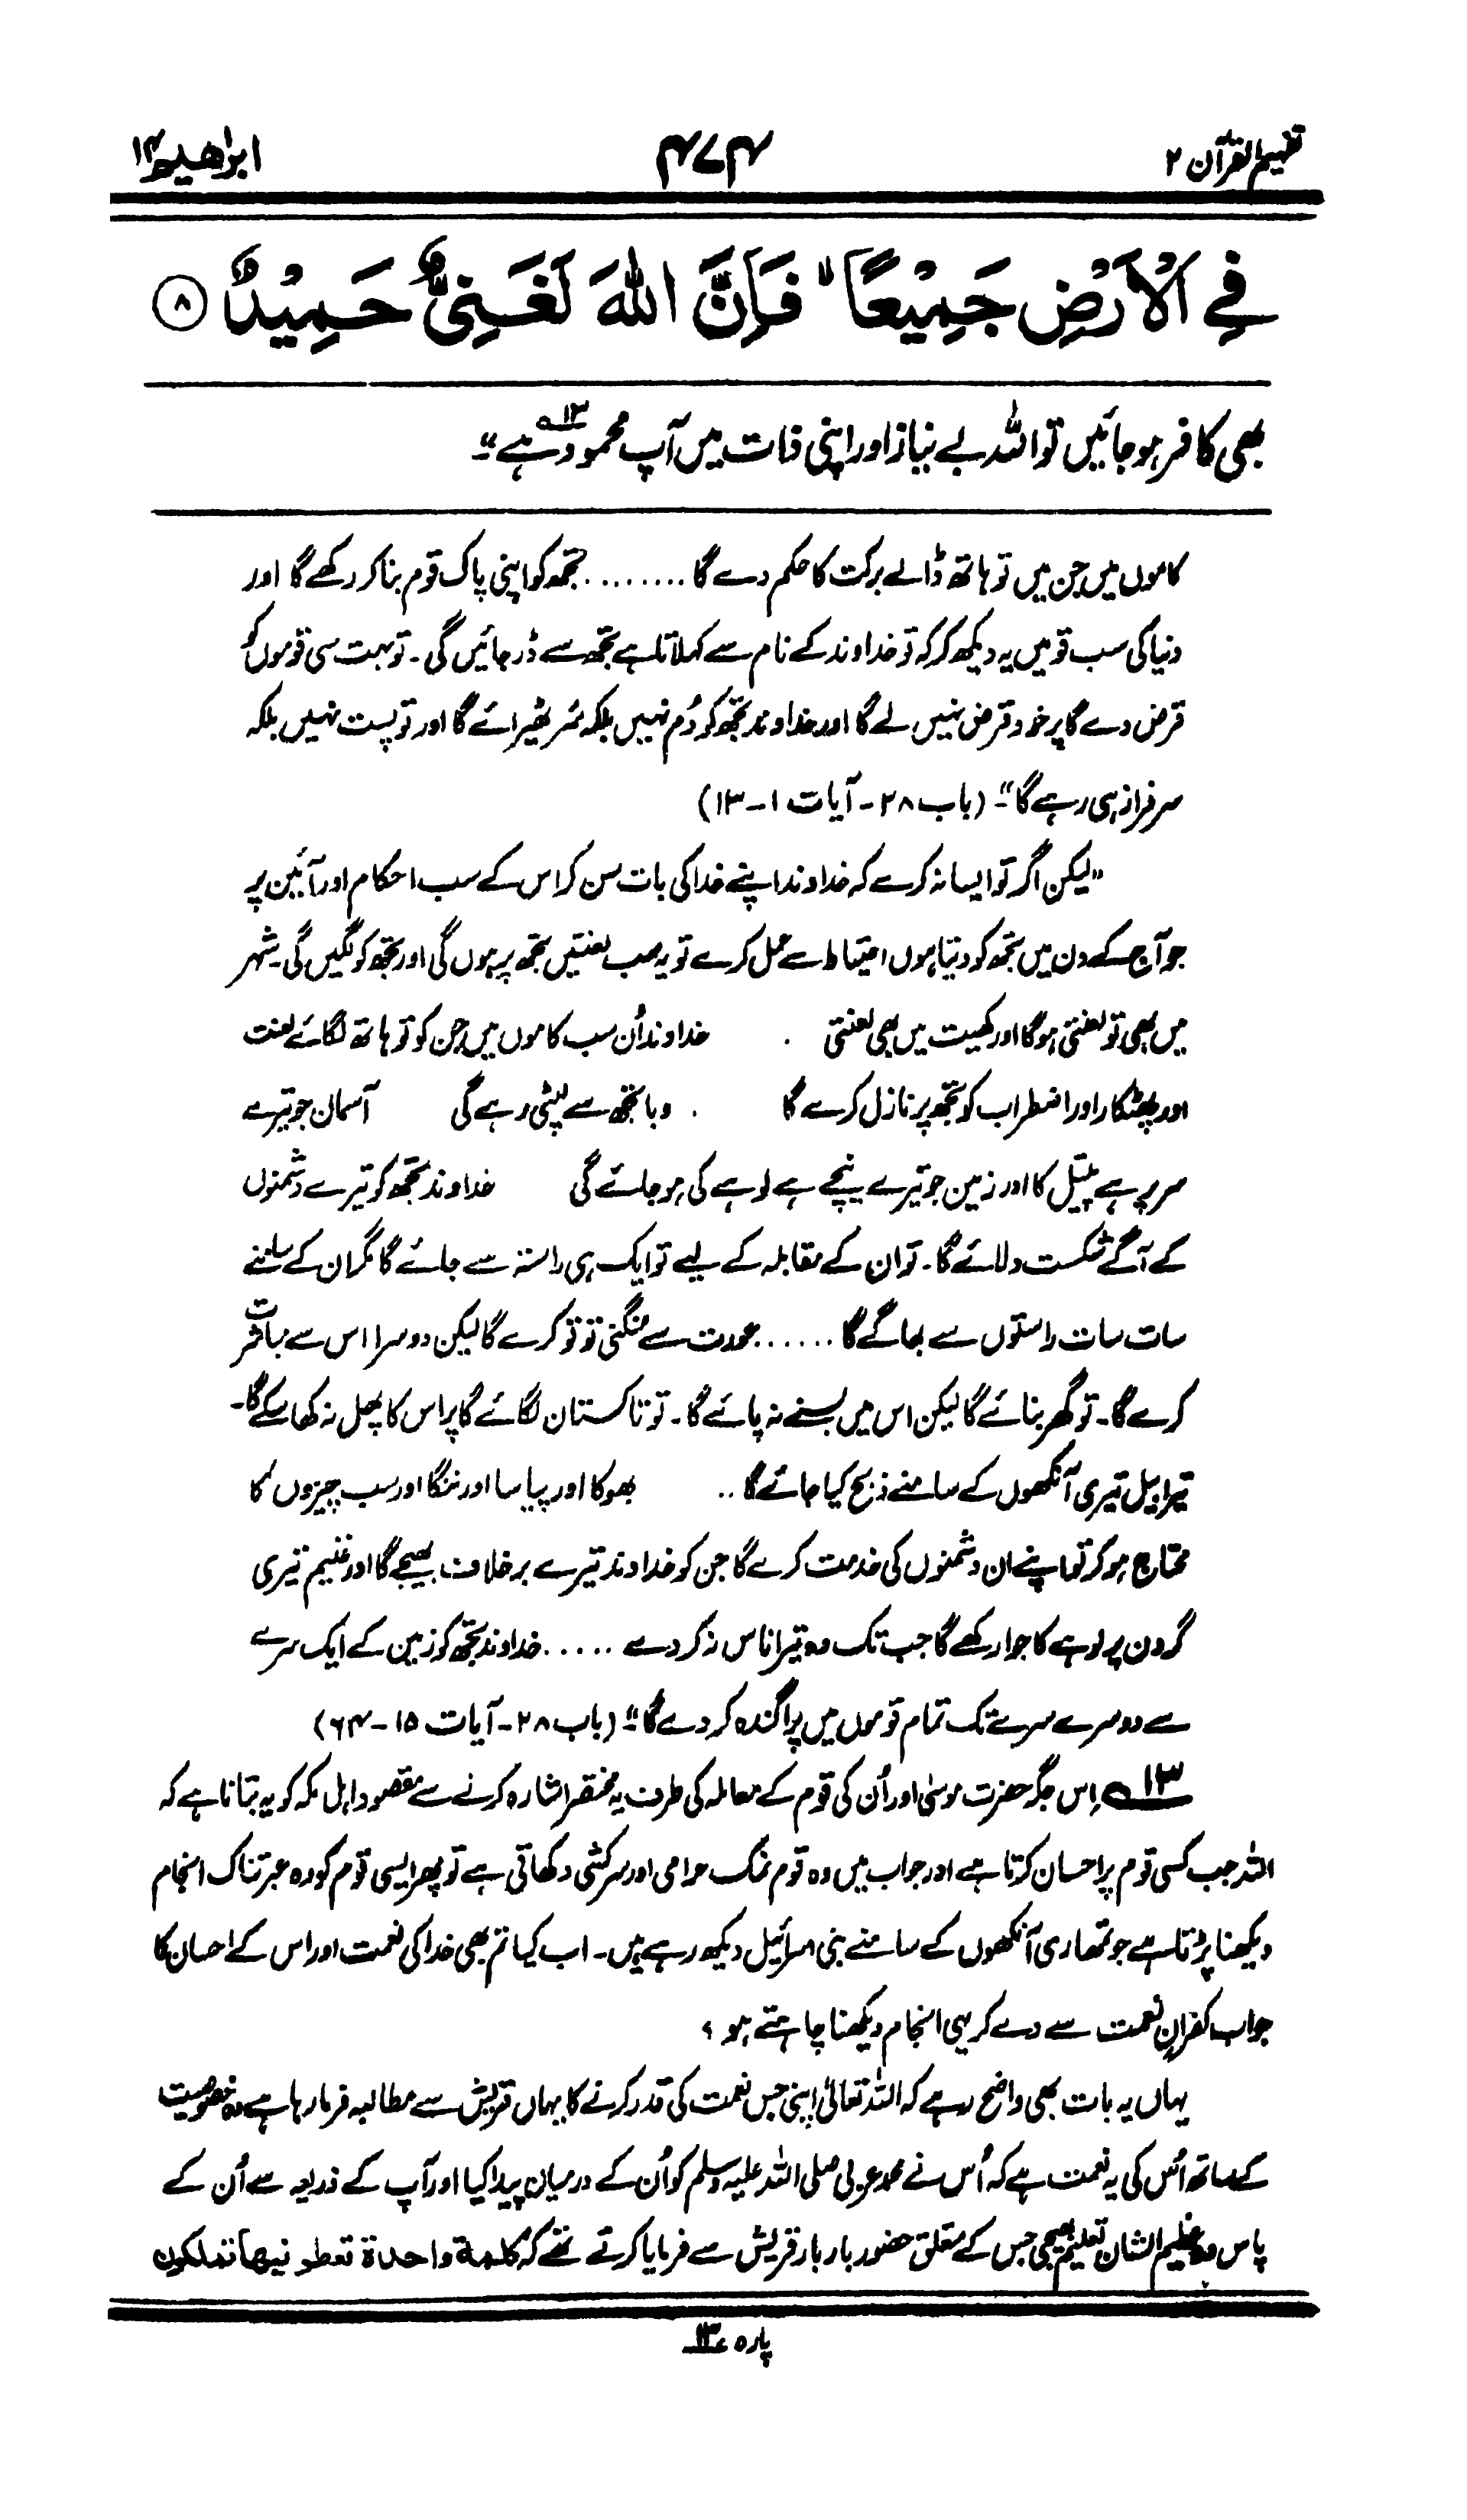 تفہیم القرآن ۲
۴۷۴
ابراھیم ۱۴
فِي الْاَرْضِ جَمِيْعًا ۙ فَاِنَّ اللّٰهَ لَغَنِيٌّ حَمِيْدٌ ۸
بھی کافر ہو جائیں تو اللہ بے نیاز اور اپنی ذات میں آپ محمود ۱۳ ہے"۔
کاموں میں جن میں تو ہاتھ ڈالے برکت کا حکم دے گا ......... تجھ کو اپنی پاک قوم بنا کر رکھے گا اور
دنیا کی سب قومیں یہ دیکھ کر کہ تو خداوند کے نام سے کہلاتا ہے تجھ سے ڈر جائیں گی۔ تو بہت سی قوموں کو
قرض دے گا پر خود قرض نہیں لے گا اور خداوند تجھ کو دُم نہیں بلکہ سَر ٹھیرائے گا اور تو پست نہیں بلکہ
سرفراز ہی رہے گا"۔ (باب ۲۸۔ آیات ۱۔۱۳)
"لیکن اگر تو ایسا نہ کرے کہ خداوند اپنے خدا کی بات سن کر اس کے سب احکام اور آئین پر
جو آج کے دن میں تجھ کو دیتا ہوں احتیاط سے عمل کرے تو یہ سب لعنتیں تجھ پر ہوں گی اور تجھ کو لگیں گی۔ شہر
میں بھی تو لعنتی ہوگا اور کھیت میں بھی لعنتی . خداوند اُن سب کاموں میں جن کو تو ہاتھ لگائے لعنت
اور پھٹکار اور اضطراب کو تجھ پر نازل کرے گا . وبا تجھ سے لپٹی رہے گی آسمان جو تیرے
سر پر ہے پیتل کا اور زمین جو تیرے نیچے ہے لوہے کی ہو جائے گی خداوند تجھ کو تیرے دشمنوں
کے آگے شکست دلائے گا۔ تو ان کے مقابلہ کے لیے تو ایک ہی راستہ سے جائے گا مگر ان کے سامنے
سات سات راستوں سے بھاگے گا ...... عورت سے منگنی تو تو کرے گا لیکن دوسرا اس سے مباشرت
کرے گا۔ تو گھر بنائے گا لیکن اس میں بسنے نہ پائے گا۔ تو تاکستان لگائے گا پر اس کا پھل نہ کھا سکے گا۔
تیرا بیل تیری آنکھوں کے سامنے ذبح کیا جائے گا .. بھوکا اور پیاسا اور ننگا اور سب چیزوں کا
محتاج ہو کر تو اپنے ان دشمنوں کی خدمت کرے گا جن کو خداوند تیرے برخلاف بھیجے گا اور غنیم تیری
گردن پر لوہے کا جوا رکھے گا جب تک وہ تیرا ناس نہ کر دے ...... خداوند تجھ کو زمین کے ایک سرے
سے دوسرے سرے تک تمام قوموں میں پراگندہ کر دے گا"۔ (باب ۲۸۔ آیات ۱۵۔۶۴)
۱۳ اِس جگہ حضرت موسیٰ اور اُن کی قوم کے معاملہ کی طرف یہ مختصر اشارہ کرنے سے مقصود اہل مکہ کو یہ بتانا ہے کہ
اللہ جب کسی قوم پر احسان کرتا ہے اور جواب میں وہ قوم نمک حرامی اور سرکشی دکھاتی ہے تو پھر ایسی قوم کو وہ عبرتناک انجام
دیکھنا پڑتا ہے جو تمھاری آنکھوں کے سامنے بنی اسرائیل دیکھ رہے ہیں۔ اب کیا تم بھی خدا کی نعمت اور اس کے احسان کا
جواب کفرانِ نعمت سے دے کر یہی انجام دیکھنا چاہتے ہو ؟
یہاں یہ بات بھی واضح رہے کہ اللہ تعالیٰ اپنی جس نعمت کی قدر کرنے کا یہاں قریش سے مطالبہ فرما رہا ہے وہ خصوصیت
کے ساتھ اُس کی یہ نعمت ہے کہ اُس نے محمد عربی صلی اللہ علیہ وسلم کو اُن کے درمیان پیدا کیا اور آپ کے ذریعہ سے اُن کے
پاس وہ عظیم الشان تعلیم بھیجی جس کے متعلق حضور بار بار قریش سے فرمایا کرتے تھے کہ کلمة واحدة تعطونیھا تملکون
پارہ ۱۳